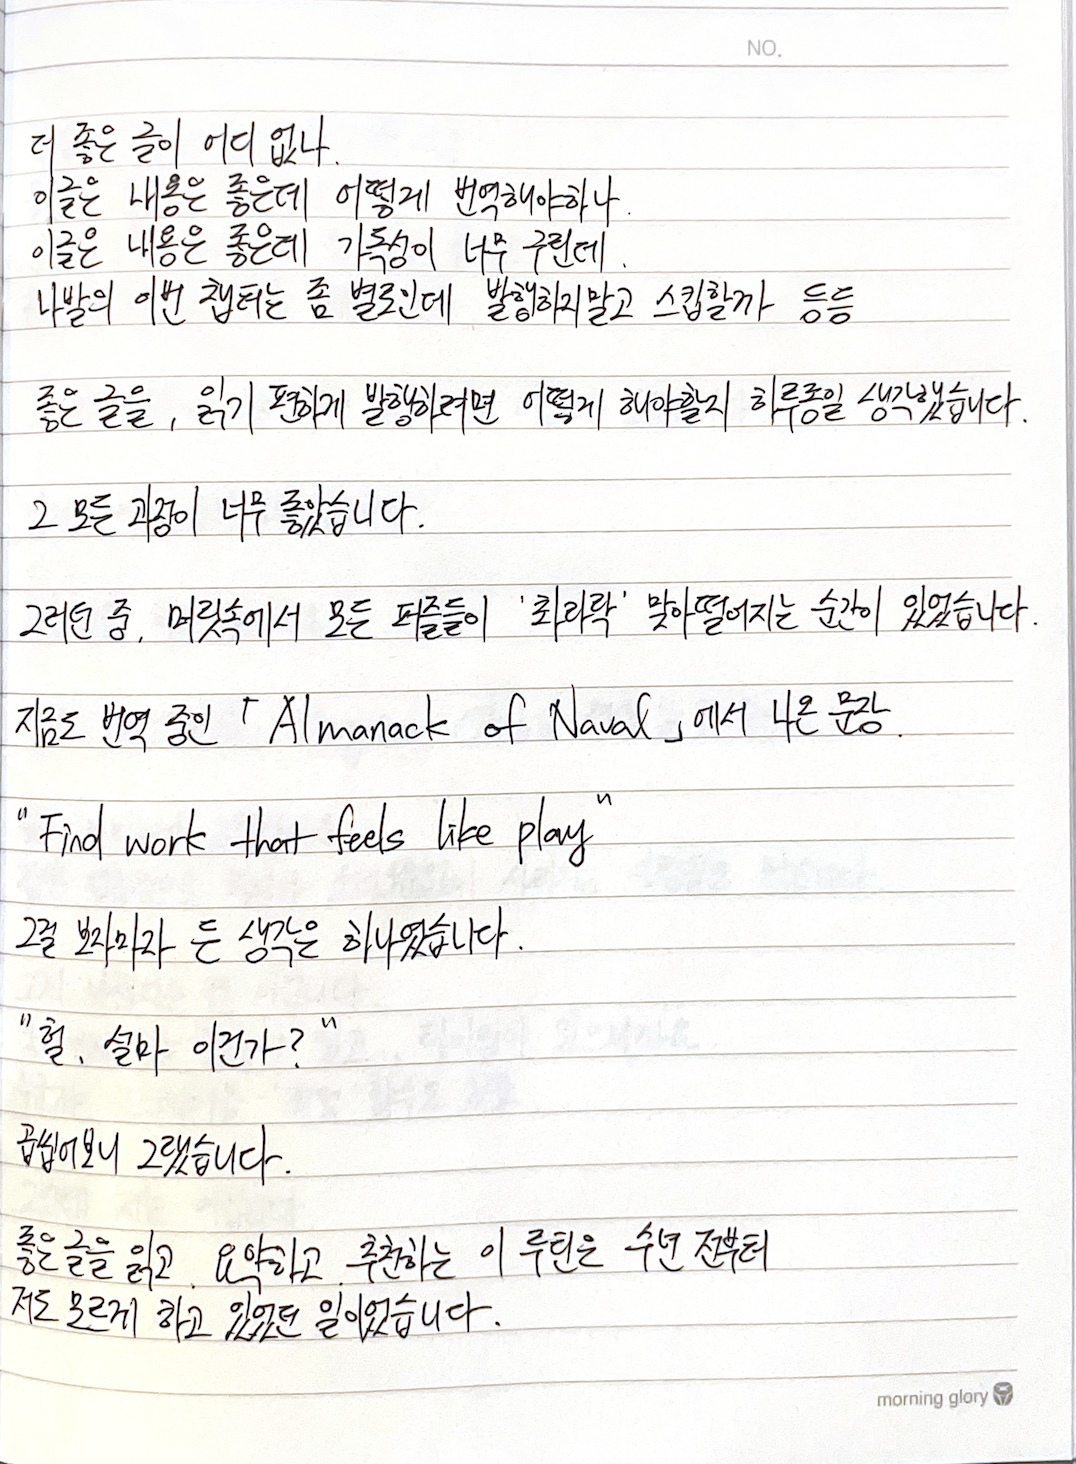 NO.
더 좋은 글이 어디 없나.
이글은 내용은 좋은데 어떻게 번역해야하나.
이글은 내용은 좋은데 가독성이 너무 구린데.
나발의 이번 챕터는 좀 별로인데 발행하지말고 스킵할까 등등
좋은 글을, 읽기 편하게 발행하려면 어떻게 해야할지 하루종일 생각했습니다.
그 모든 과정이 너무 좋았습니다.
그러던 중, 머릿속에서 모든 퍼즐들이 '촤라락' 맞아떨어지는 순간이 있었습니다.
지금도 번역 중인 「Almanack of Naval」에서 나온 문장.
"Find work that feels like play"
그걸 보자마자 든 생각은 하나였습니다.
"헐, 설마 이건가?"
곱씹어보니 그랬습니다.
좋은 글을 읽고, 요약하고, 추천하는 이 루틴은 수년 전부터
저도 모르게 하고 있었던 일이었습니다.
morning glory